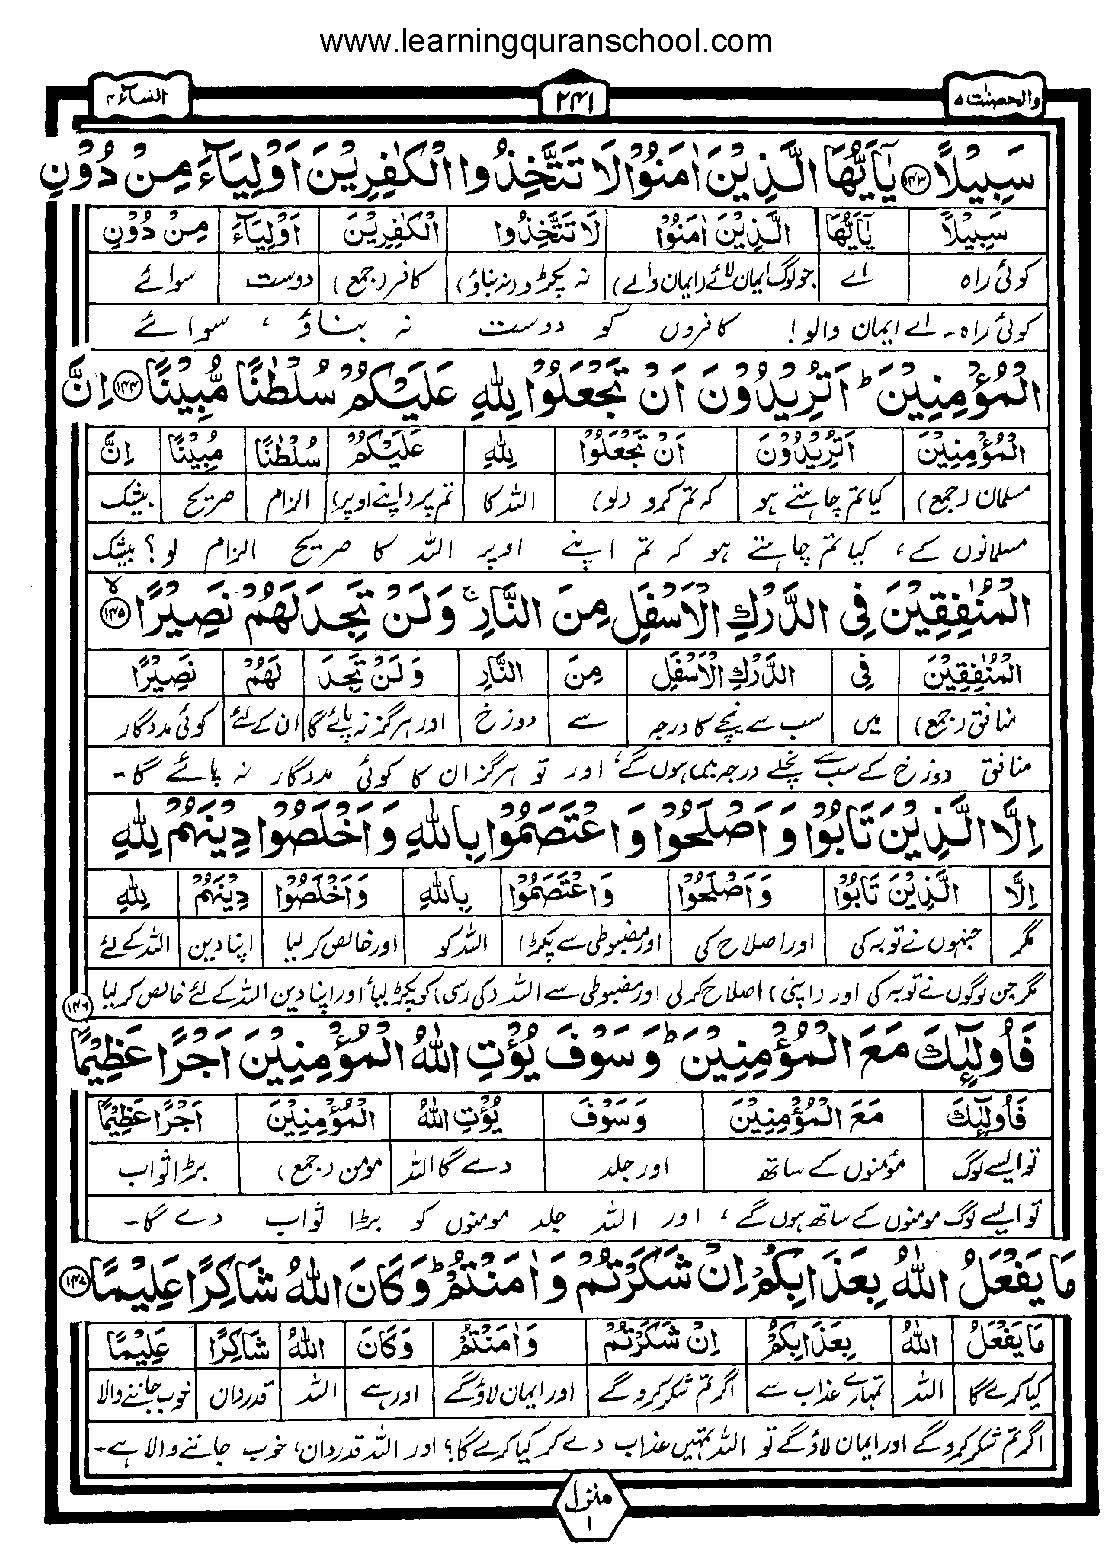 www.learningquranschool.com
والمحصنٰت ۵ ۲۴۱ النسآء ۴
سَبِيْلًا ﴿۱۴۳﴾ يٰٓاَيُّهَا الَّذِيْنَ اٰمَنُوْا لَا تَتَّخِذُوا الْكٰفِرِيْنَ اَوْلِيَآءَ مِنْ دُوْنِ
سَبِيْلًا يٰٓاَيُّهَا الَّذِيْنَ اٰمَنُوْا لَا تَتَّخِذُوا الْكٰفِرِيْنَ اَوْلِيَآءَ مِنْ دُوْنِ
کوئی راہ اے جو لوگ ایمان لائے (ایمان والے) نہ پکڑو (نہ بناؤ) کافر (جمع) دوست سوائے
کوئی راہ۔ اے ایمان والو! کافروں کو دوست نہ بناؤ ، سوائے
الْمُؤْمِنِيْنَ ؕ اَتُرِيْدُوْنَ اَنْ تَجْعَلُوْا لِلّٰهِ عَلَيْكُمْ سُلْطٰنًا مُّبِيْنًا ﴿۱۴۴﴾ اِنَّ
الْمُؤْمِنِيْنَ اَتُرِيْدُوْنَ اَنْ تَجْعَلُوْا لِلّٰهِ عَلَيْكُمْ سُلْطٰنًا مُّبِيْنًا اِنَّ
مسلمان (جمع) کیا تم چاہتے ہو کہ تم کرو (لو) اللہ کا تم پر (اپنے اوپر) الزام صریح بیشک
مسلمانوں کے، کیا تم چاہتے ہو کہ تم اپنے اوپر اللہ کا صریح الزام لو؟ بیشک
الْمُنٰفِقِيْنَ فِى الدَّرْكِ الْاَسْفَلِ مِنَ النَّارِ ۚ وَلَنْ تَجِدَ لَهُمْ نَصِيْرًا ﴿۱۴۵﴾ۙ
الْمُنٰفِقِيْنَ فِى الدَّرْكِ الْاَسْفَلِ مِنَ النَّارِ وَلَنْ تَجِدَ لَهُمْ نَصِيْرًا
منافق (جمع) میں سب سے نیچے کا درجہ سے دوزخ اور ہرگز نہ پائے گا ان کے لئے کوئی مددگار
منافق دوزخ کے سب سے نچلے درجہ میں ہوں گے، اور تو ہرگز ان کا کوئی مددگار نہ پائے گا۔
اِلَّا الَّذِيْنَ تَابُوْا وَاَصْلَحُوْا وَاعْتَصَمُوْا بِاللّٰهِ وَاَخْلَصُوْا دِيْنَهُمْ لِلّٰهِ
اِلَّا الَّذِيْنَ تَابُوْا وَاَصْلَحُوْا وَاعْتَصَمُوْا بِاللّٰهِ وَاَخْلَصُوْا دِيْنَهُمْ لِلّٰهِ
مگر جنہوں نے توبہ کی اور اصلاح کی اور مضبوطی سے پکڑا اللہ کو اور خالص کر لیا اپنا دین اللہ کے لئے
مگر جن لوگوں نے توبہ کی اور (اپنی) اصلاح کر لی اور مضبوطی سے اللہ (کی رسی) کو پکڑ لیا اور اپنا دین اللہ کے لئے خالص کر لیا
فَاُولٰٓئِكَ مَعَ الْمُؤْمِنِيْنَ ؕ وَسَوْفَ يُؤْتِ اللّٰهُ الْمُؤْمِنِيْنَ اَجْرًا عَظِيْمًا ﴿۱۴۶﴾
فَاُولٰٓئِكَ مَعَ الْمُؤْمِنِيْنَ وَسَوْفَ يُؤْتِ اللّٰهُ الْمُؤْمِنِيْنَ اَجْرًا عَظِيْمًا
تو ایسے لوگ مؤمنوں کے ساتھ اور جلد دے گا اللہ مومن (جمع) بڑا ثواب
تو ایسے لوگ مومنوں کے ساتھ ہوں گے، اور اللہ جلد مومنوں کو بڑا ثواب دے گا۔
مَا يَفْعَلُ اللّٰهُ بِعَذَابِكُمْ اِنْ شَكَرْتُمْ وَاٰمَنْتُمْ ؕ وَكَانَ اللّٰهُ شَاكِرًا عَلِيْمًا ﴿۱۴۷﴾
مَا يَفْعَلُ اللّٰهُ بِعَذَابِكُمْ اِنْ شَكَرْتُمْ وَاٰمَنْتُمْ وَكَانَ اللّٰهُ شَاكِرًا عَلِيْمًا
کیا کرے گا اللہ تمہارے عذاب سے اگر تم شکر کرو گے اور ایمان لاؤ گے اور ہے اللہ قدردان خوب جاننے والا
اگر تم شکر کرو گے اور ایمان لاؤ گے تو اللہ تمہیں عذاب دے کر کیا کرے گا؟ اور اللہ قدردان، خوب جاننے والا ہے۔
منزل ۱